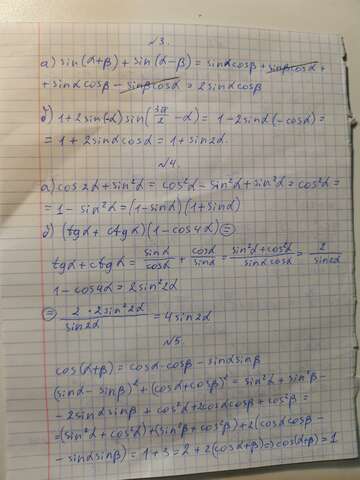 №3.
а) sin(α+β) + sin(α−β) = sinαcosβ + sinβcosα +
+ sinαcosβ − sinβcosα = 2sinαcosβ
б) 1+2sin(−α) sin(3π/2 − α) = 1 − 2sinα(−cosα) =
= 1 + 2sinαcosα = 1 + sin2α.
№4.
а) cos2α + sin²α = cos²α − sin²α + sin²α = cos²α =
= 1 − sin²α = (1−sinα)(1+sinα)
б) (tgα + ctgα)(1−cos4α) =
tgα + ctgα = sinα/cosα + cosα/sinα = (sin²α+cos²α)/(sinαcosα) = 2/sin2α
1 − cos4α = 2sin²2α
= (2·2sin²2α)/sin2α = 4sin2α
№5.
cos(α+β) = cosα·cosβ − sinαsinβ
(sinα − sinβ)² + (cosα+cosβ)² = sin²α + sin²β −
− 2sinαsinβ + cos²α + 2cosαcosβ + cos²β =
= (sin²α + cos²α) + (sin²β + cos²β) + 2(cosαcosβ −
− sinαsinβ) = 1 + 3 = 2 + 2(cos(α+β) ⇒ cos(α+β) = 1